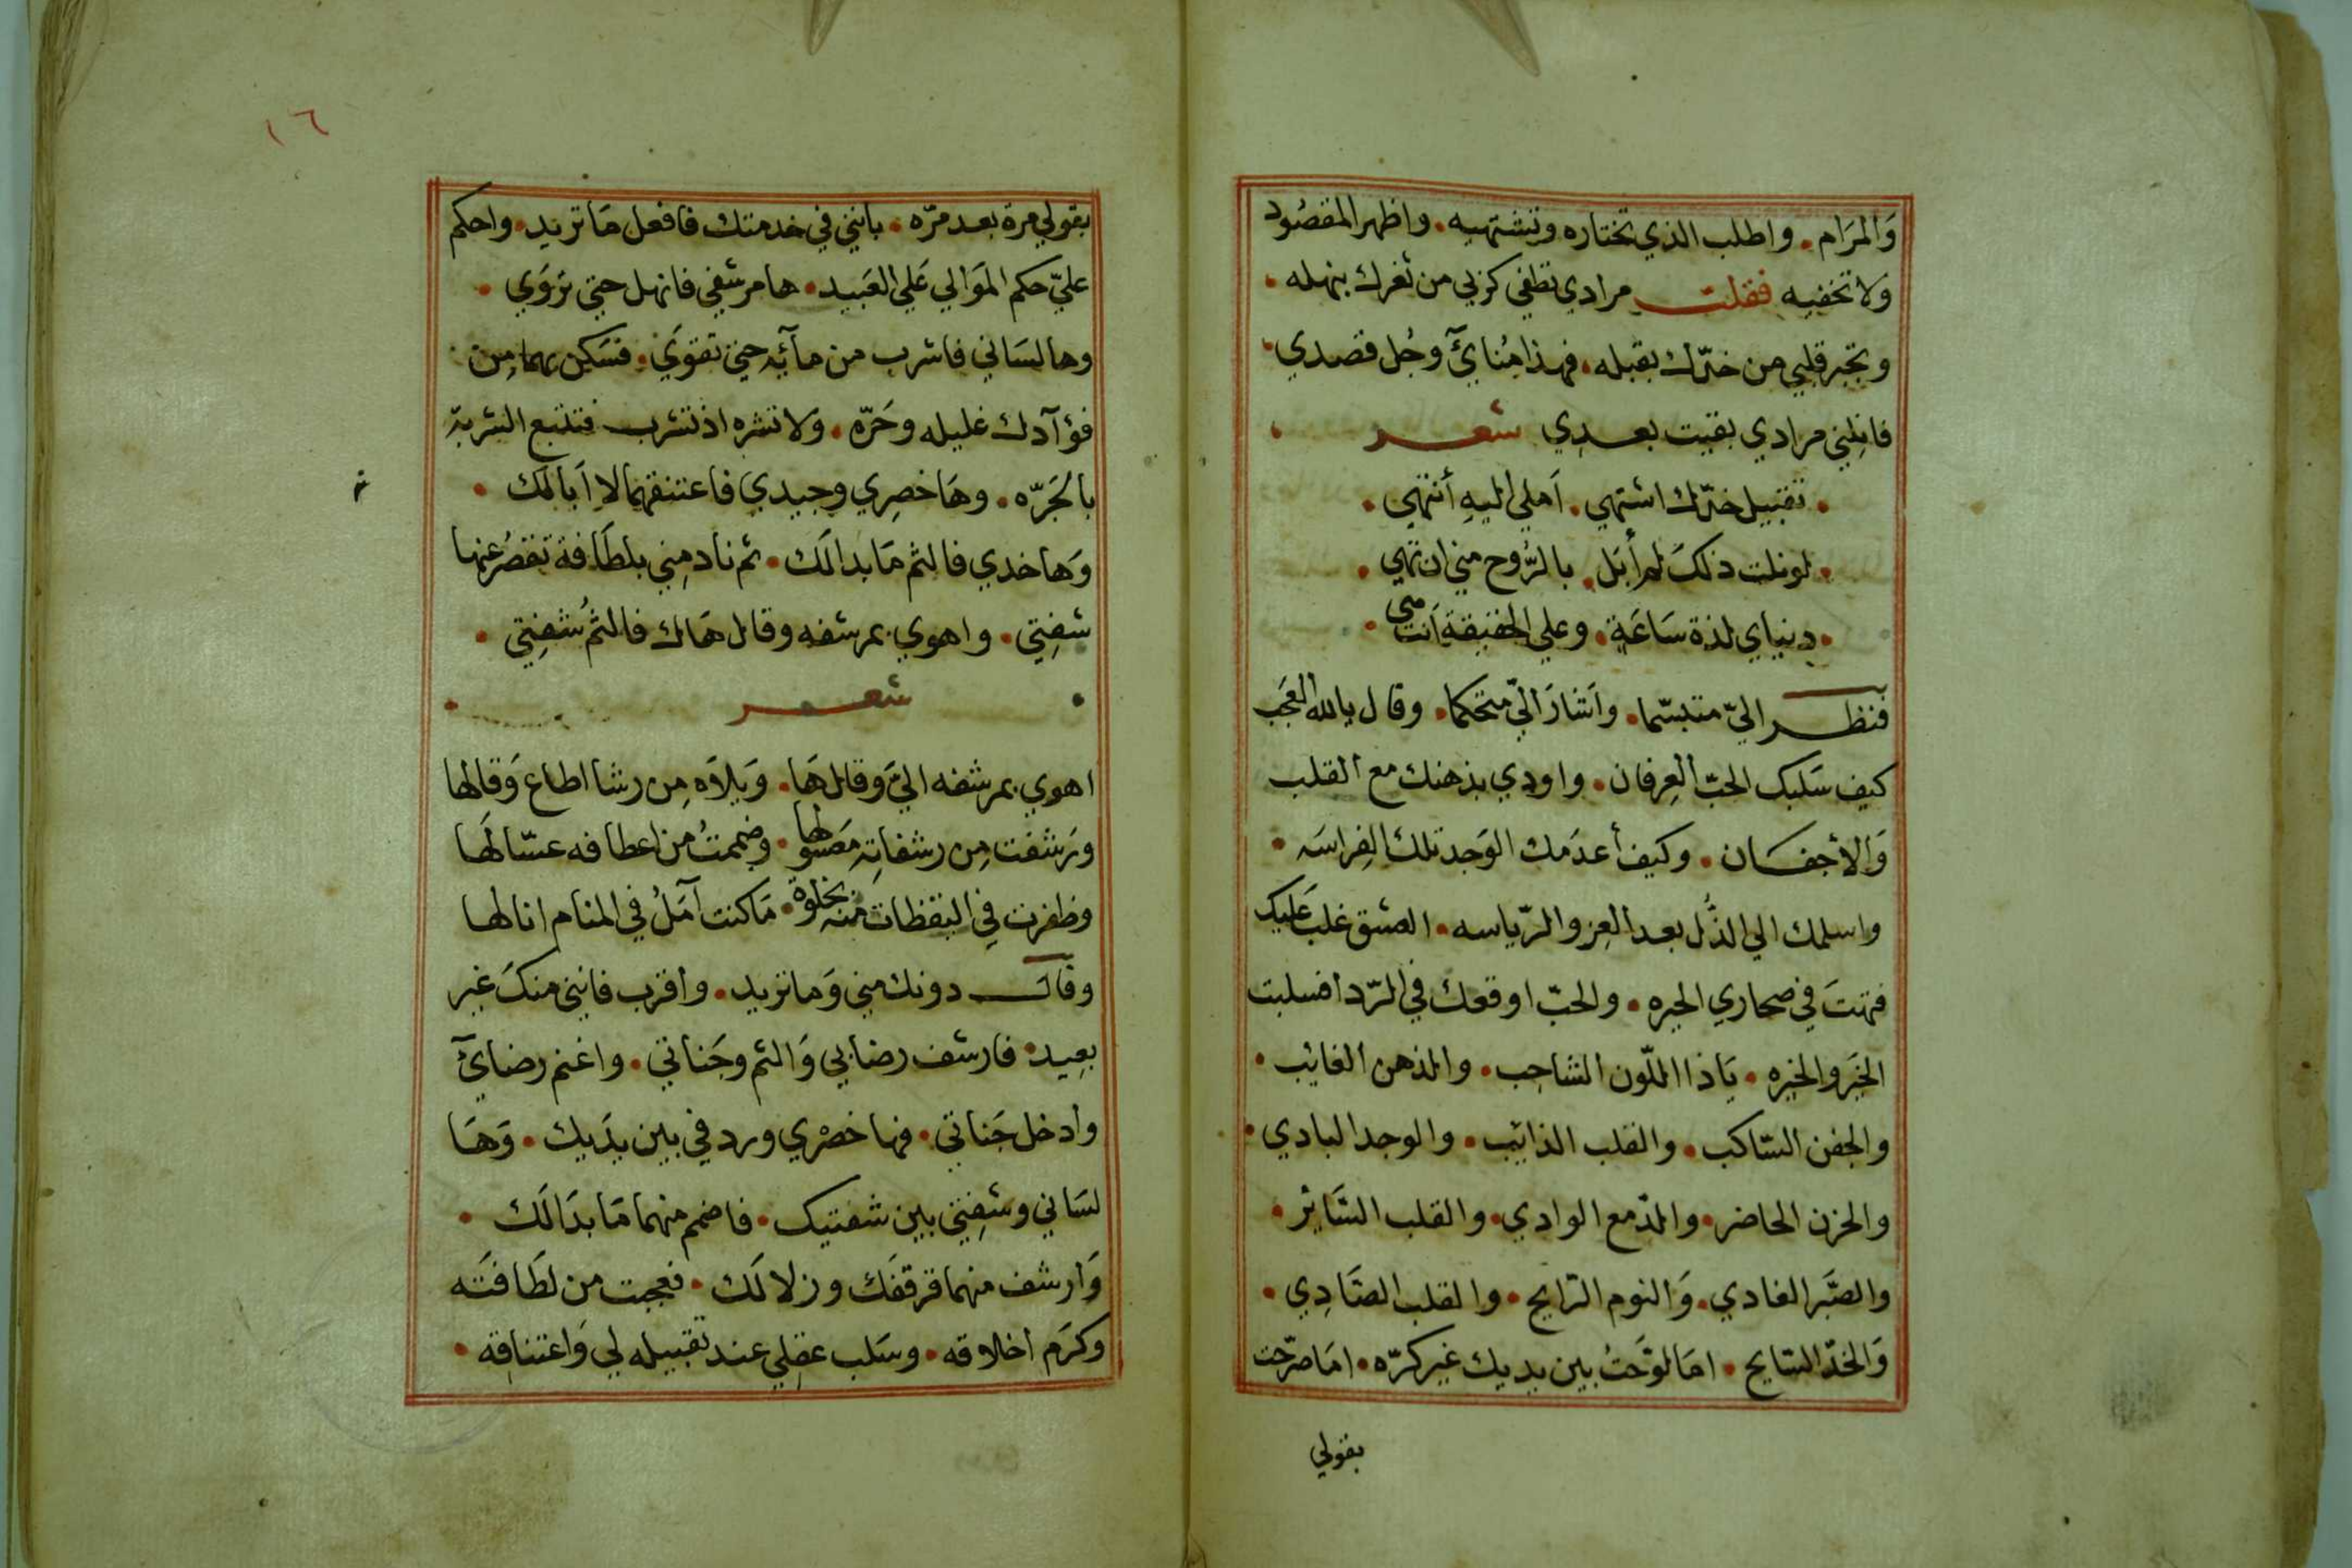 وَالمرَام . واطلب الذي تختاره وتشتهيه . واظهر المقصُود
ولا تخفيه فقلت مرادي تطفي كربي من ثغرك بنهله .
وتجبر قلبي من خدّك بقبله . فهذا مُنايَ وجُل قصدي .
فانِلِني مرادي بقيت بعدي شعر .
. تقبيل خدّك اشتهي . اَملي اليهِ أنتهي .
. لو نلت ذلكَ لم أبَل . بالرُّوح مني ان تهي .
. دنياي لذة سَاعَةٍ . وعلي الحقيقة اَنت هي .
فنظر اليّ متبسّما . واَشارَ اليّ متحكما . وقال يالله العَجَب
كيف سَلبك الحبّ العِرفان . واودي بذهنك مع القلب
وَالاجفان . وكيف أعدَمك الوَجد تلك الفِراسَه .
واسلمك الي الذُّل بعد العِز والرّياسه . العشق غلب عَليك
فهتَ في صحاري الحيره . والحبّ اوقعك في الرّدا فسلبت
الخَير والخيره . يَا ذا اللّون الشاحِب . والذهن الغائب .
والجفن السّاكب . والقلب الذائب . والوجد البادي .
والحزن الحاضر . والدّمع الوادي . والقلب السَّائر .
والصَّبر الغادي . وَالنوم الرّايح . والقلب الصَّادِي .
وَالخدّ السّايح . امَا لوّحَتُ بين يديك غير كرّه . امَا صرّحت
بقولي
١٦
بقولي مرة بعد مرّه . بانني في خدمتك فافعل مَا تريد . واحكم
عليّ حكم الموَالي عَلي العَبيد . ها مرشفي فانهل حتي تروَي .
وها لسَاني فاشرب من مآئه حتي تقويَ . فسَكِن بهما مِن
فؤآدك غليله وحَرّه . وَلا تشره اذ تشرب فتتبع الشربة
بالجَرّه . وهَا خصِري وجيدي فاعتنقهما لا اَبا لَك .
وَها خدي فالثم مَا بدا لَك . ثم نادمِني بلطَافة تقصُر عنها
شفِتي . واهوي بمرشفه وقال هَاك فالثُم شفِتي .
. شعر .
اهوي بمرشفه اليَّ وقال هَا . وَيلاَه مِن رشا اطاع وَقالها
ورَشفت مِن رشفاتِهِ مَعسُولها . وضممتُ من اعطافه عسّالَها
وظفرت فِي اليقظات منه بخلوةٍ . مَا كنت آمَلُ في المنام انالها
وقال دونك مني وَما تريد . واقرب فانني منكَ غير
بعِيد . فارشف رضابي وَالثم وجَناتي . واغنم رضايَ
وادخل جَناتي . فها خصْري وردفي بين يدَيك . وَهَا
لسَاني وشفِتي بين شفتيك . فاضمم منهما مَا بدَا لَك .
وَارشف منهما قرقفَك وزلالَك . فعجبت من لطَافتَه
وكرَم اخلاقه . وسَلب عقِلي عند تقبيله لي وَاعتناقِه .